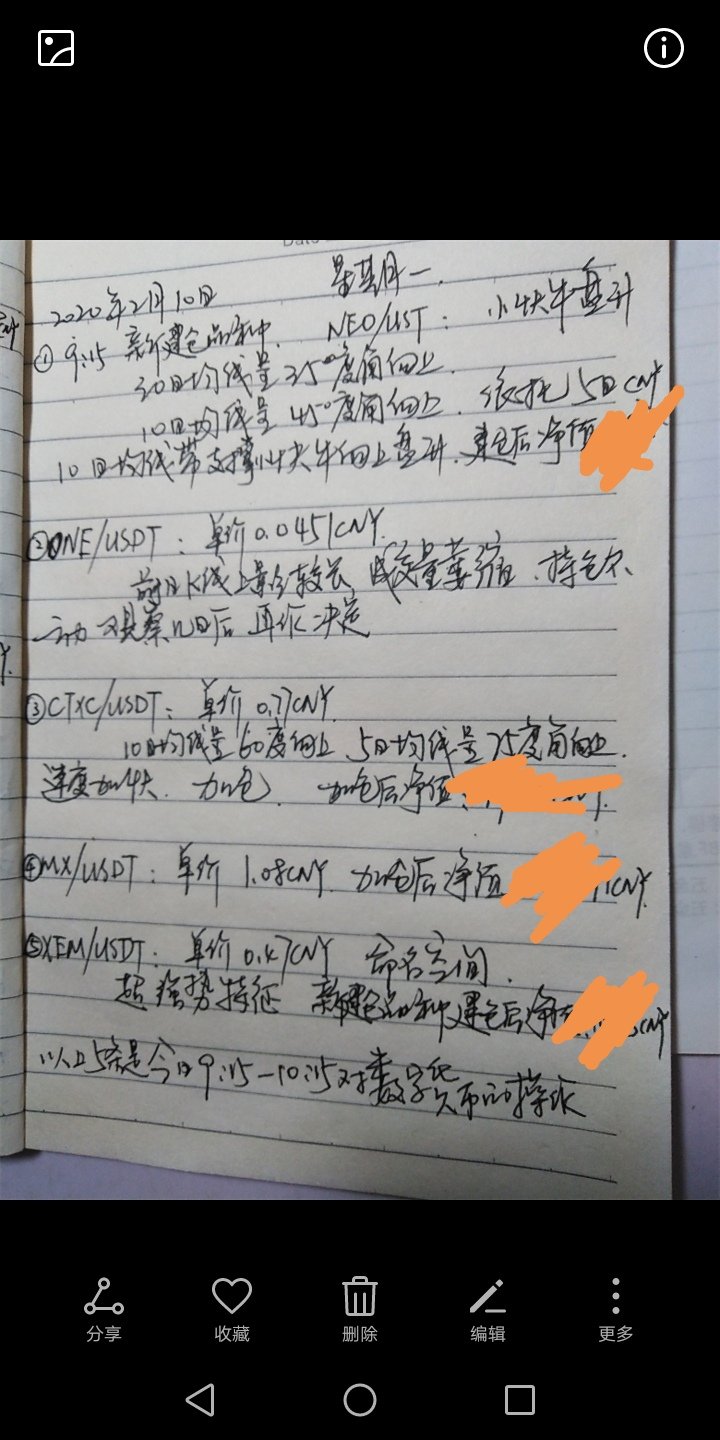 2020年2月10日 星期一.
①9:15 新建仓品种. NEO/UST: 小块牛盘升
30日均线呈35°度角向上.
10日均线呈45°度角向上. 依托15日CNY
10日均线带支撑小块牛向上盘升. 建仓后净值
②ONE/USDT: 单价0.0451CNY.
前日K线上影线较长 成交量萎缩. 持仓不
动 观察几日后 再作决定
③CTXC/USDT: 单价0.77CNY.
10日均线呈60度向上 5日均线呈75度角向上.
速度加快. 加仓. 加仓后净值
④MX/USDT: 单价1.08CNY. 加仓后净值 1CNY.
⑤XEM/USDT: 单价0.47CNY 命名空间.
超强势特征 新建仓品种 建仓后净值 CNY
以上5条是今日9:15-10:15对数字货币的操作
分享 收藏 删除 编辑 更多